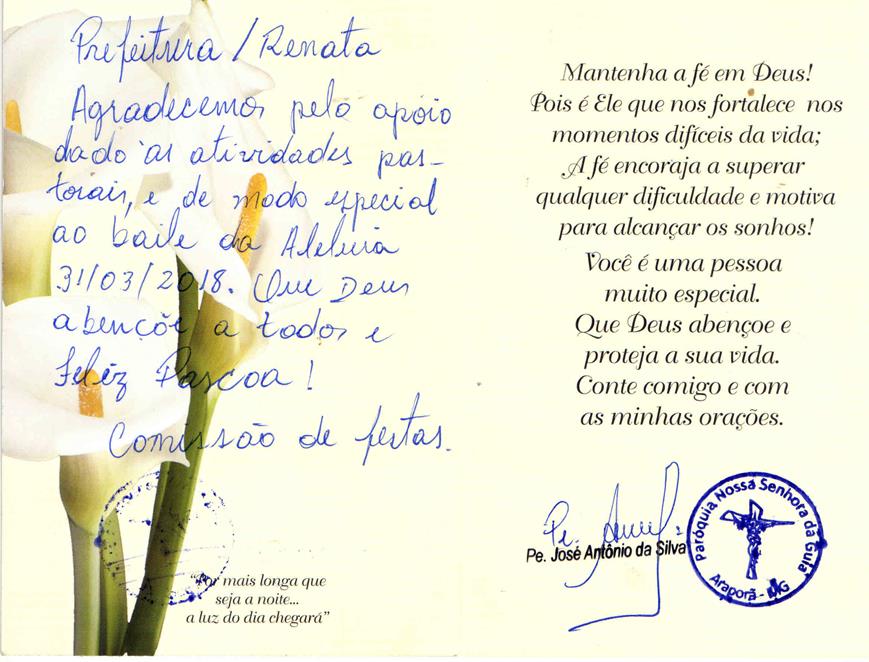 Prefeitura / Renata
Agradecemos pelo apoio
dado às atividades pas-
torais, e de modo especial
ao baile da Aleluia
31/03/2018. Que Deus
abençõe a todos e
Feliz Pascoa!
Comissão de festas.
"Por mais longa que
seja a noite...
a luz do dia chegará"
Mantenha a fé em Deus!
Pois é Ele que nos fortalece nos
momentos difíceis da vida;
A fé encoraja a superar
qualquer dificuldade e motiva
para alcançar os sonhos!
Você é uma pessoa
muito especial.
Que Deus abençoe e
proteja a sua vida.
Conte comigo e com
as minhas orações.
Pe.
Pe. José Antônio da Silva
Paróquia Nossa Senhora da Guia
Araporã - MG